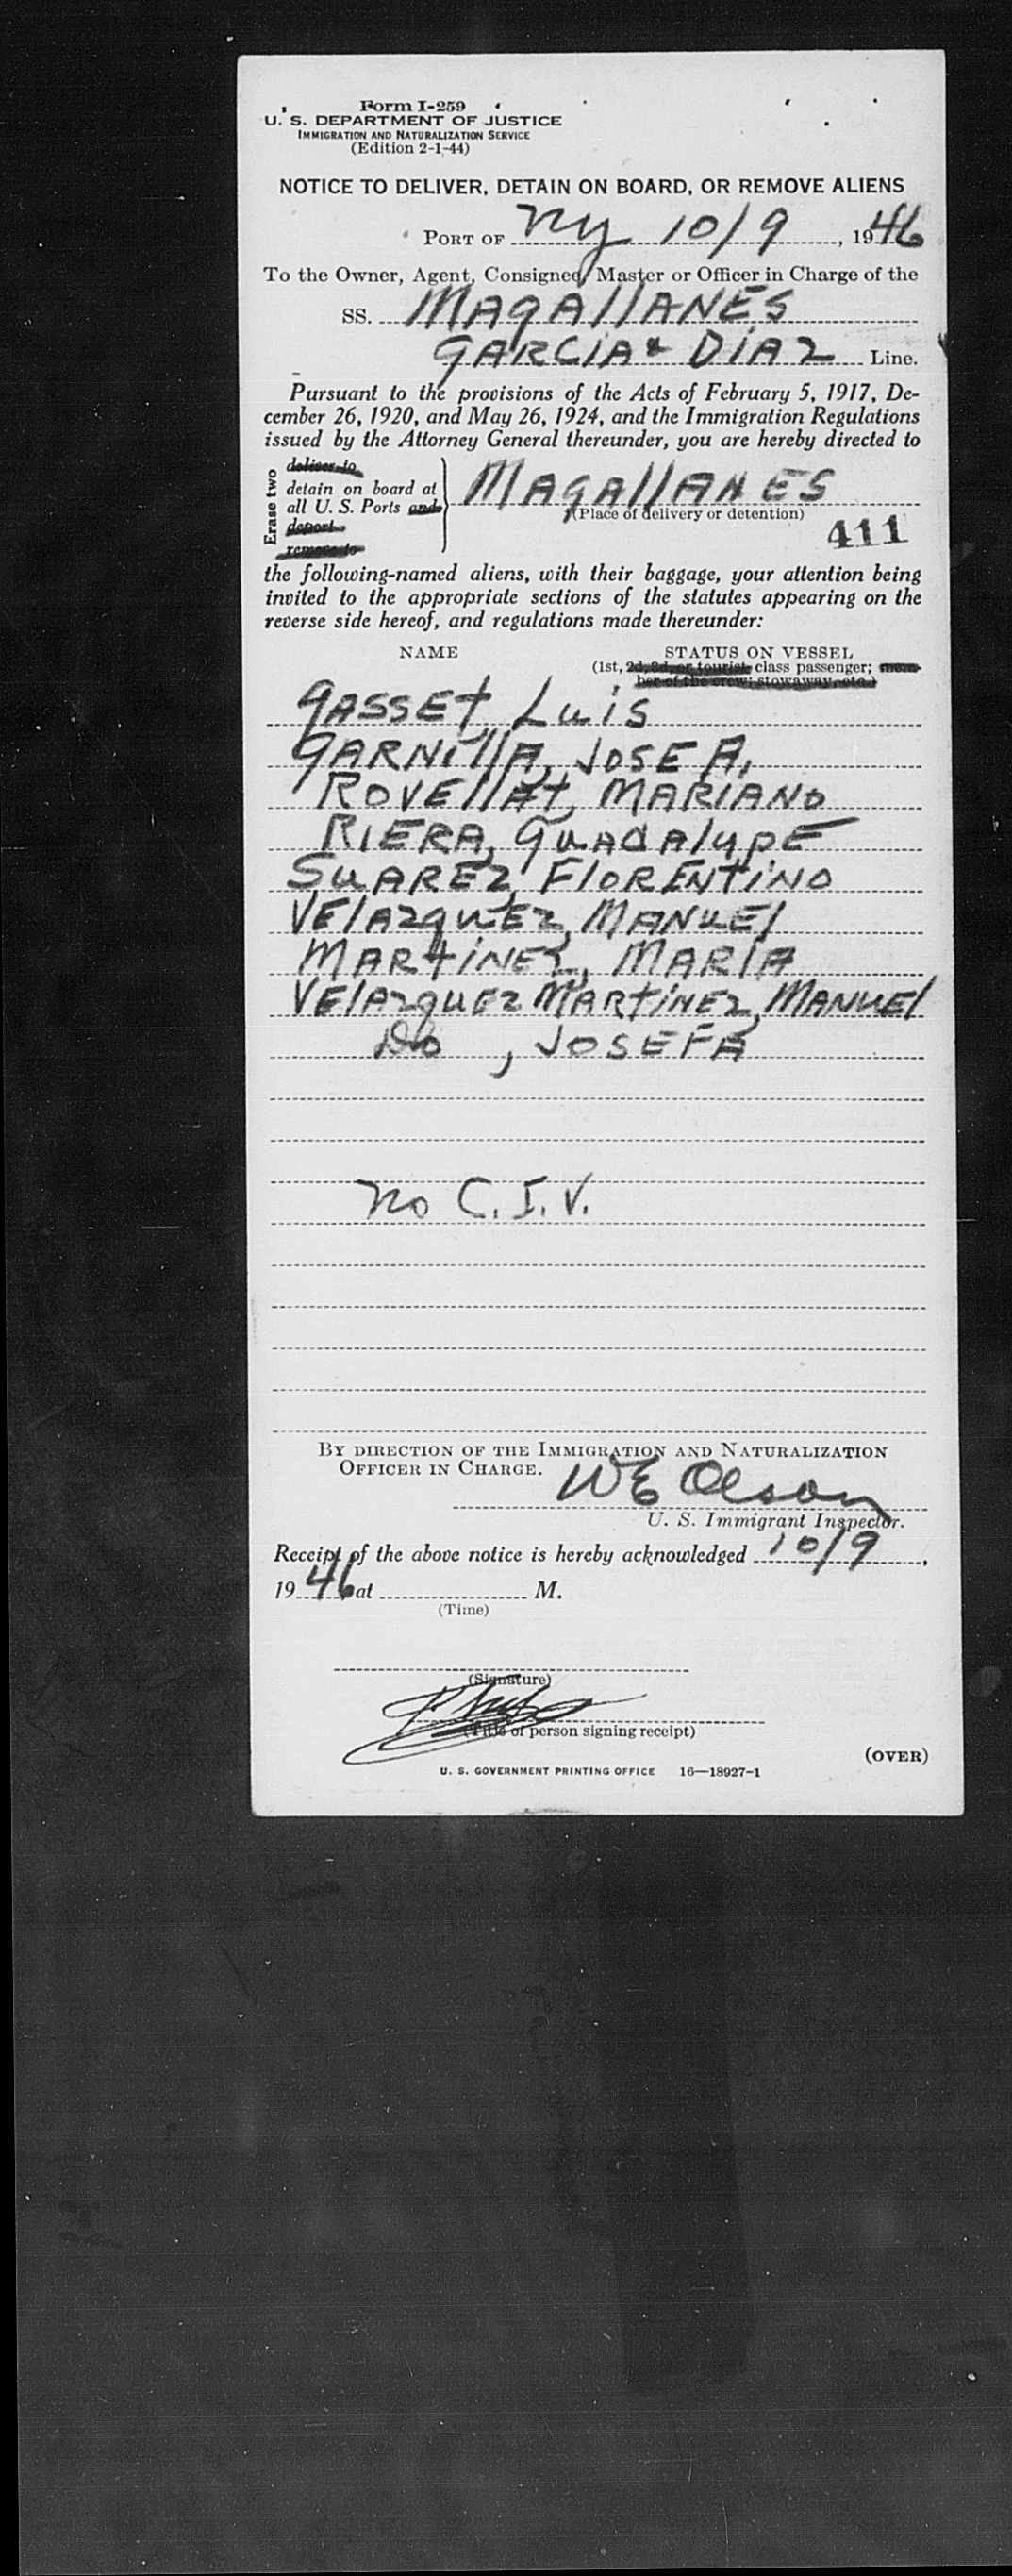 Form I-259
U. S. DEPARTMENT OF JUSTICE
IMMIGRATION AND NATURALIZATION SERVICE
(Edition 2-1-44)
NOTICE TO DELIVER, DETAIN ON BOARD, OR REMOVE ALIENS
PORT OF NY 10/9, 1946
To the Owner, Agent, Consignee, Master or Officer in Charge of the
SS. MAGAllANES
GARCIA & DIAZ Line.
Pursuant to the provisions of the Acts of February 5, 1917, De-
cember 26, 1920, and May 26, 1924, and the Immigration Regulations
issued by the Attorney General thereunder, you are hereby directed to
Erase two
deliver to
detain on board at
all U. S. Ports and
deport
remove to
MAGAllANES
(Place of delivery or detention)
411
the following-named aliens, with their baggage, your attention being
invited to the appropriate sections of the statutes appearing on the
reverse side hereof, and regulations made thereunder:
NAME STATUS ON VESSEL
(1st, 2d, 3d, or tourist class passenger; mem-
ber of the crew; stowaway, etc.)
GASSEt, Luis
GARNillA, JOSE A.
ROVEllAt, MARIANO
RIERA, GUADAlUPE
SUAREZ FlORENtiNO
VElAZQUEZ, MANUEl
MARtiNEZ, MARIA
VElAZQUEZ MARtiNEZ, MANUEl
Do , JOSEFA
No C. I. V.
BY DIRECTION OF THE IMMIGRATION AND NATURALIZATION
OFFICER IN CHARGE.
WE Olson
U. S. Immigrant Inspector.
Receipt of the above notice is hereby acknowledged 10/9,
1946 at M.
(Time)
(Signature)
(Title of person signing receipt)
(OVER)
U. S. GOVERNMENT PRINTING OFFICE 16—18927-1